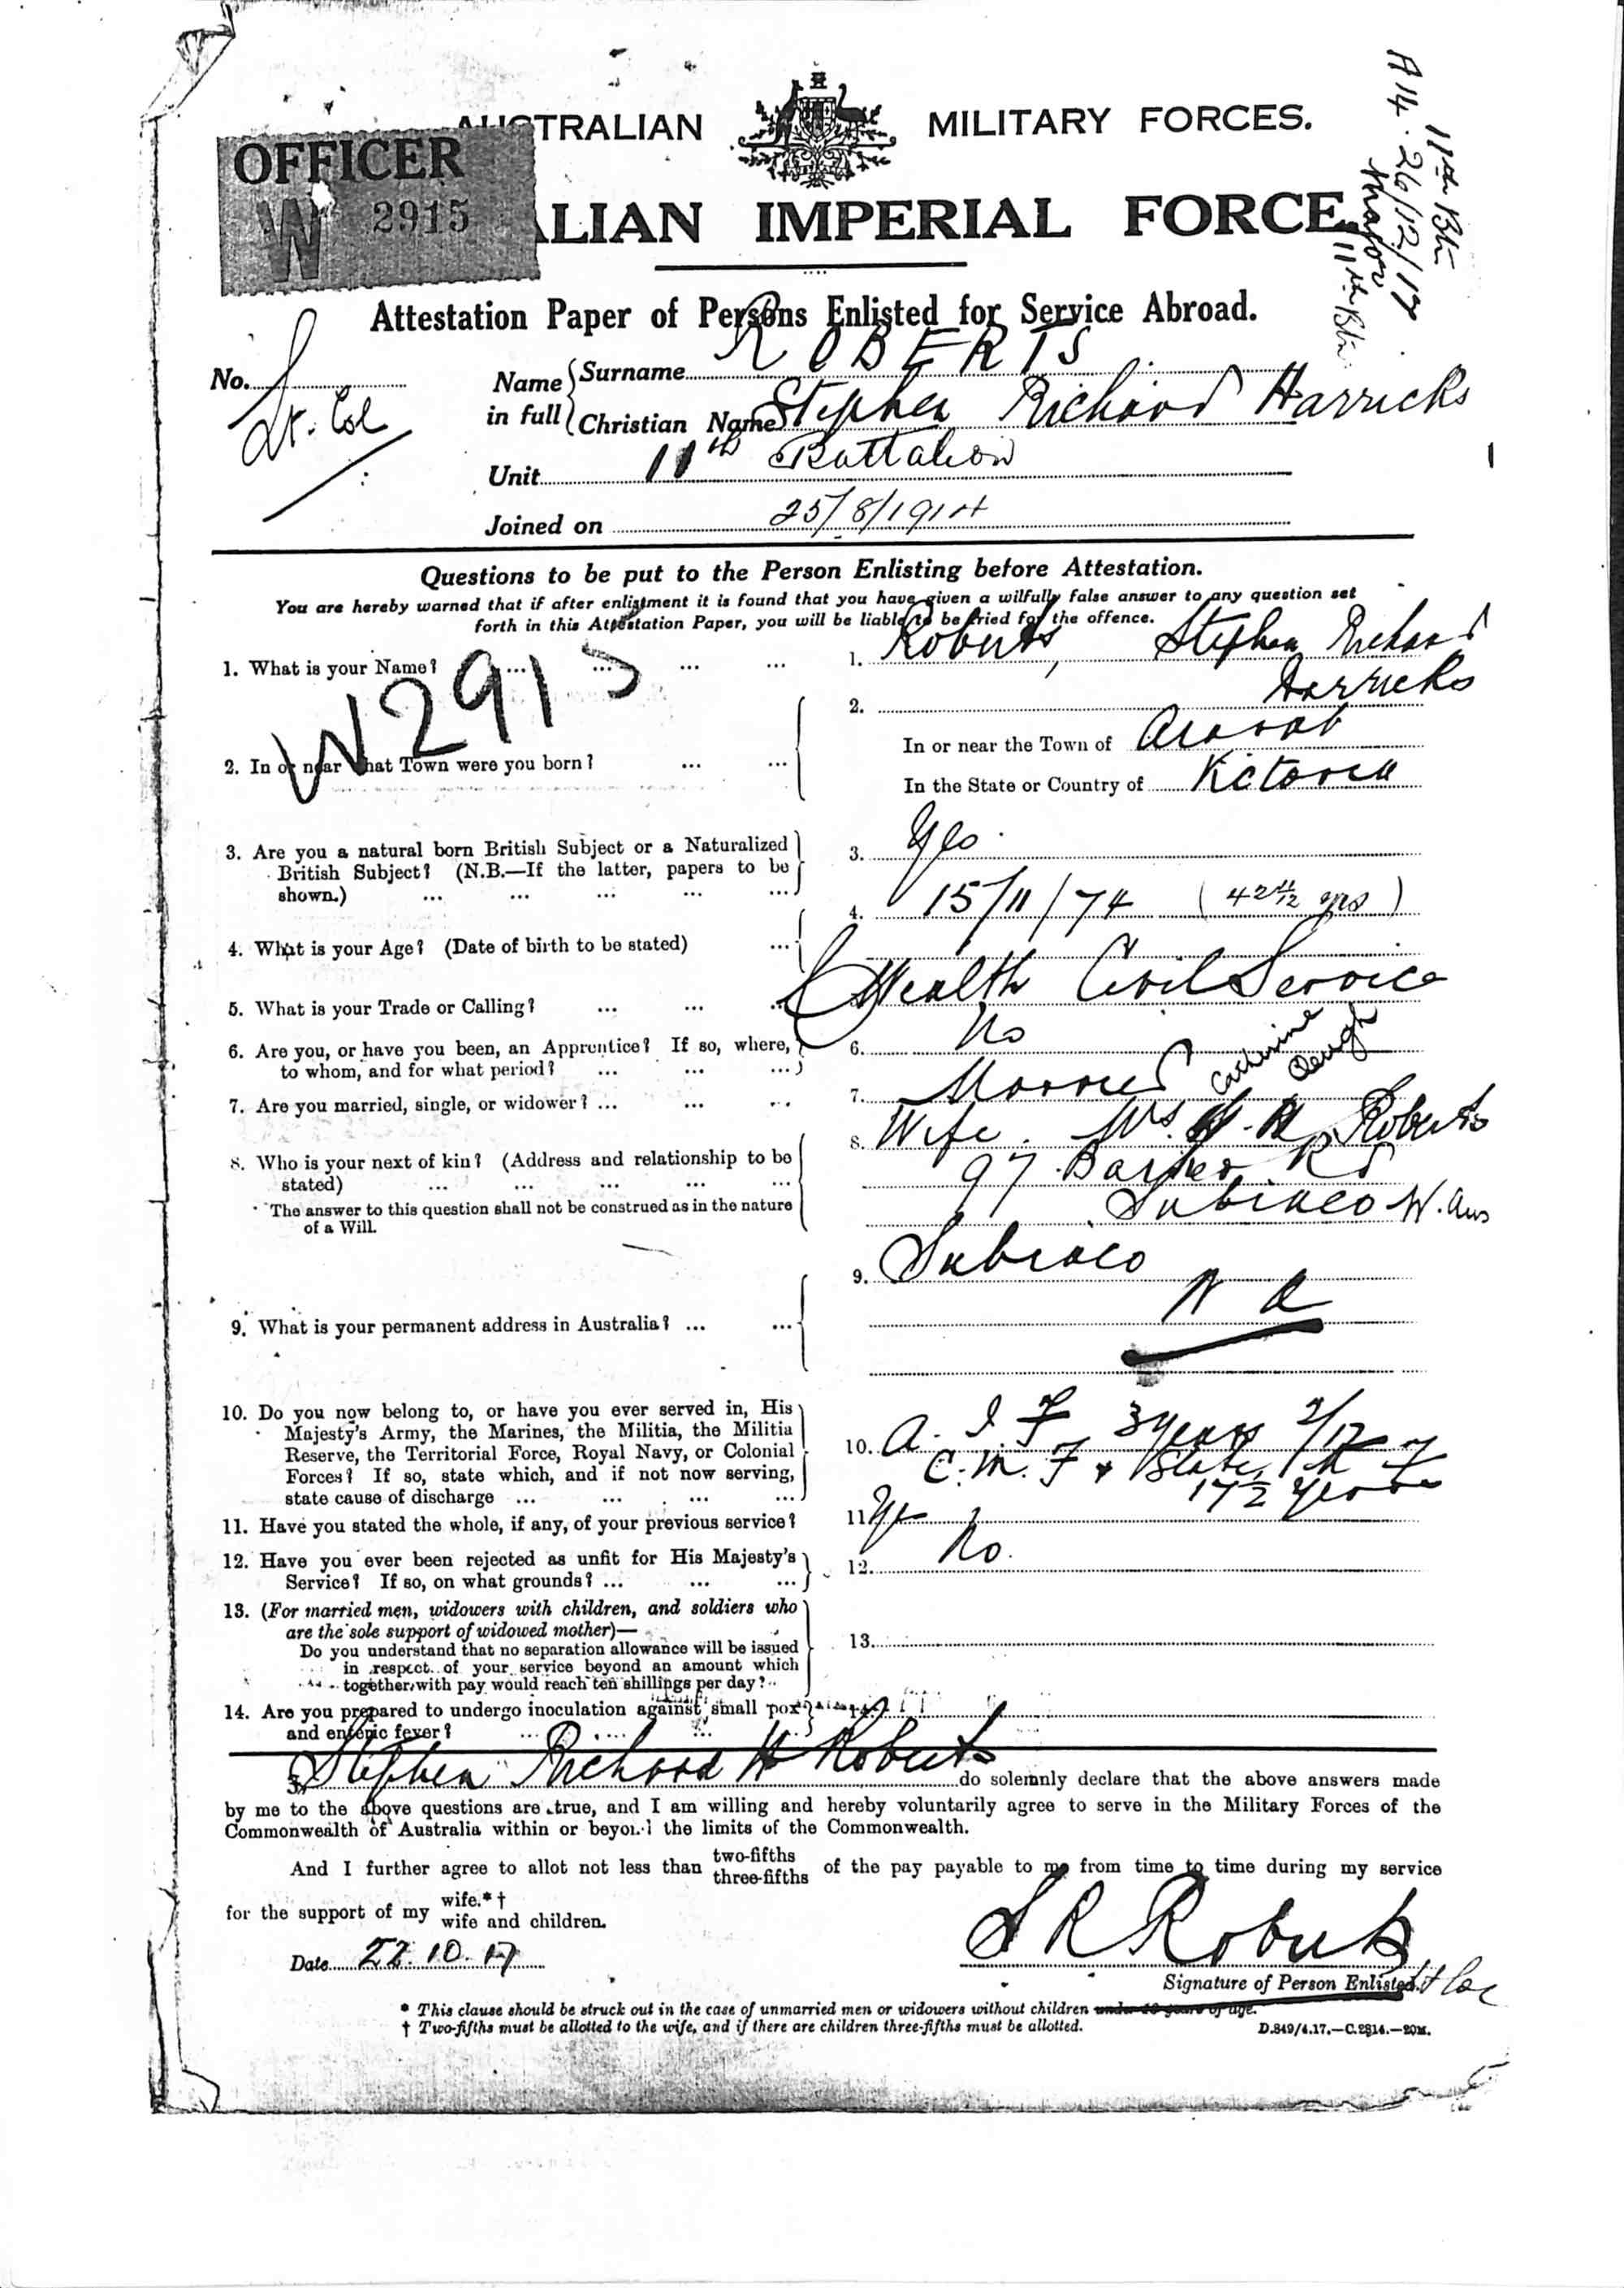 AUSTRALIAN MILITARY FORCES.
OFFICER
W 2915
ALIAN IMPERIAL FORCE.
11th Btn
A 14. 26/12/17
Major
11th Btn
Attestation Paper of Persons Enlisted for Service Abroad.
No.
Lt. Col
Name in full
Surname ROBERTS
Christian Name Stephen Richard Harricks
Unit 11th Battalion
Joined on 25/8/1914
Questions to be put to the Person Enlisting before Attestation.
You are hereby warned that if after enlistment it is found that you have given a wilfully false answer to any question set
forth in this Attestation Paper, you will be liable to be tried for the offence.
W2915
1. What is your Name? ... ... ... ...
1. Roberts, Stephen Richard
Harricks
2. In or near what Town were you born? ... ...
2.
In or near the Town of Ararat
In the State or Country of Victoria
3. Are you a natural born British Subject or a Naturalized
British Subject? (N.B.—If the latter, papers to be
shown.) ... ... ... ... ...
3. Yes.
4. What is your Age? (Date of birth to be stated) ...
4. 15/11/74 (42 11/12 yrs)
5. What is your Trade or Calling? ... ... ...
C'Wealth Civil Service
6. Are you, or have you been, an Apprentice? If so, where,
to whom, and for what period? ... ... ...
6. No
7. Are you married, single, or widower? ... ... ...
7. Married
Catherine
8. Who is your next of kin? (Address and relationship to be
stated) ... ... ... ... ...
The answer to this question shall not be construed as in the nature
of a Will.
8. Wife. Mrs. Roberts
97 Barker Rd
Subiaco W. Aus
9. What is your permanent address in Australia? ... ...
9. Subiaco
W A
10. Do you now belong to, or have you ever served in, His
Majesty's Army, the Marines, the Militia, the Militia
Reserve, the Territorial Force, Royal Navy, or Colonial
Forces? If so, state which, and if not now serving,
state cause of discharge ... ... ... ...
10. A. I F 3 years 2/12
C. M. F & State M F
17½ years
11. Have you stated the whole, if any, of your previous service?
11. Yes
12. Have you ever been rejected as unfit for His Majesty's
Service? If so, on what grounds? ... ... ...
12. No.
13. (For married men, widowers with children, and soldiers who
are the sole support of widowed mother)—
Do you understand that no separation allowance will be issued
in respect of your service beyond an amount which
together with pay would reach ten shillings per day?
13.
14. Are you prepared to undergo inoculation against small pox
and enteric fever? ... ... ...
I, Stephen Richard H Roberts do solemnly declare that the above answers made
by me to the above questions are true, and I am willing and hereby voluntarily agree to serve in the Military Forces of the
Commonwealth of Australia within or beyond the limits of the Commonwealth.
And I further agree to allot not less than two-fifths three-fifths of the pay payable to me from time to time during my service
for the support of my wife.*† wife and children.
Date 22.10.17
S R Roberts
Signature of Person Enlisted. Lt Col
* This clause should be struck out in the case of unmarried men or widowers without children under 18 years of age.
† Two-fifths must be allotted to the wife, and if there are children three-fifths must be allotted.
D.849/4.17.—C.2814.—20M.